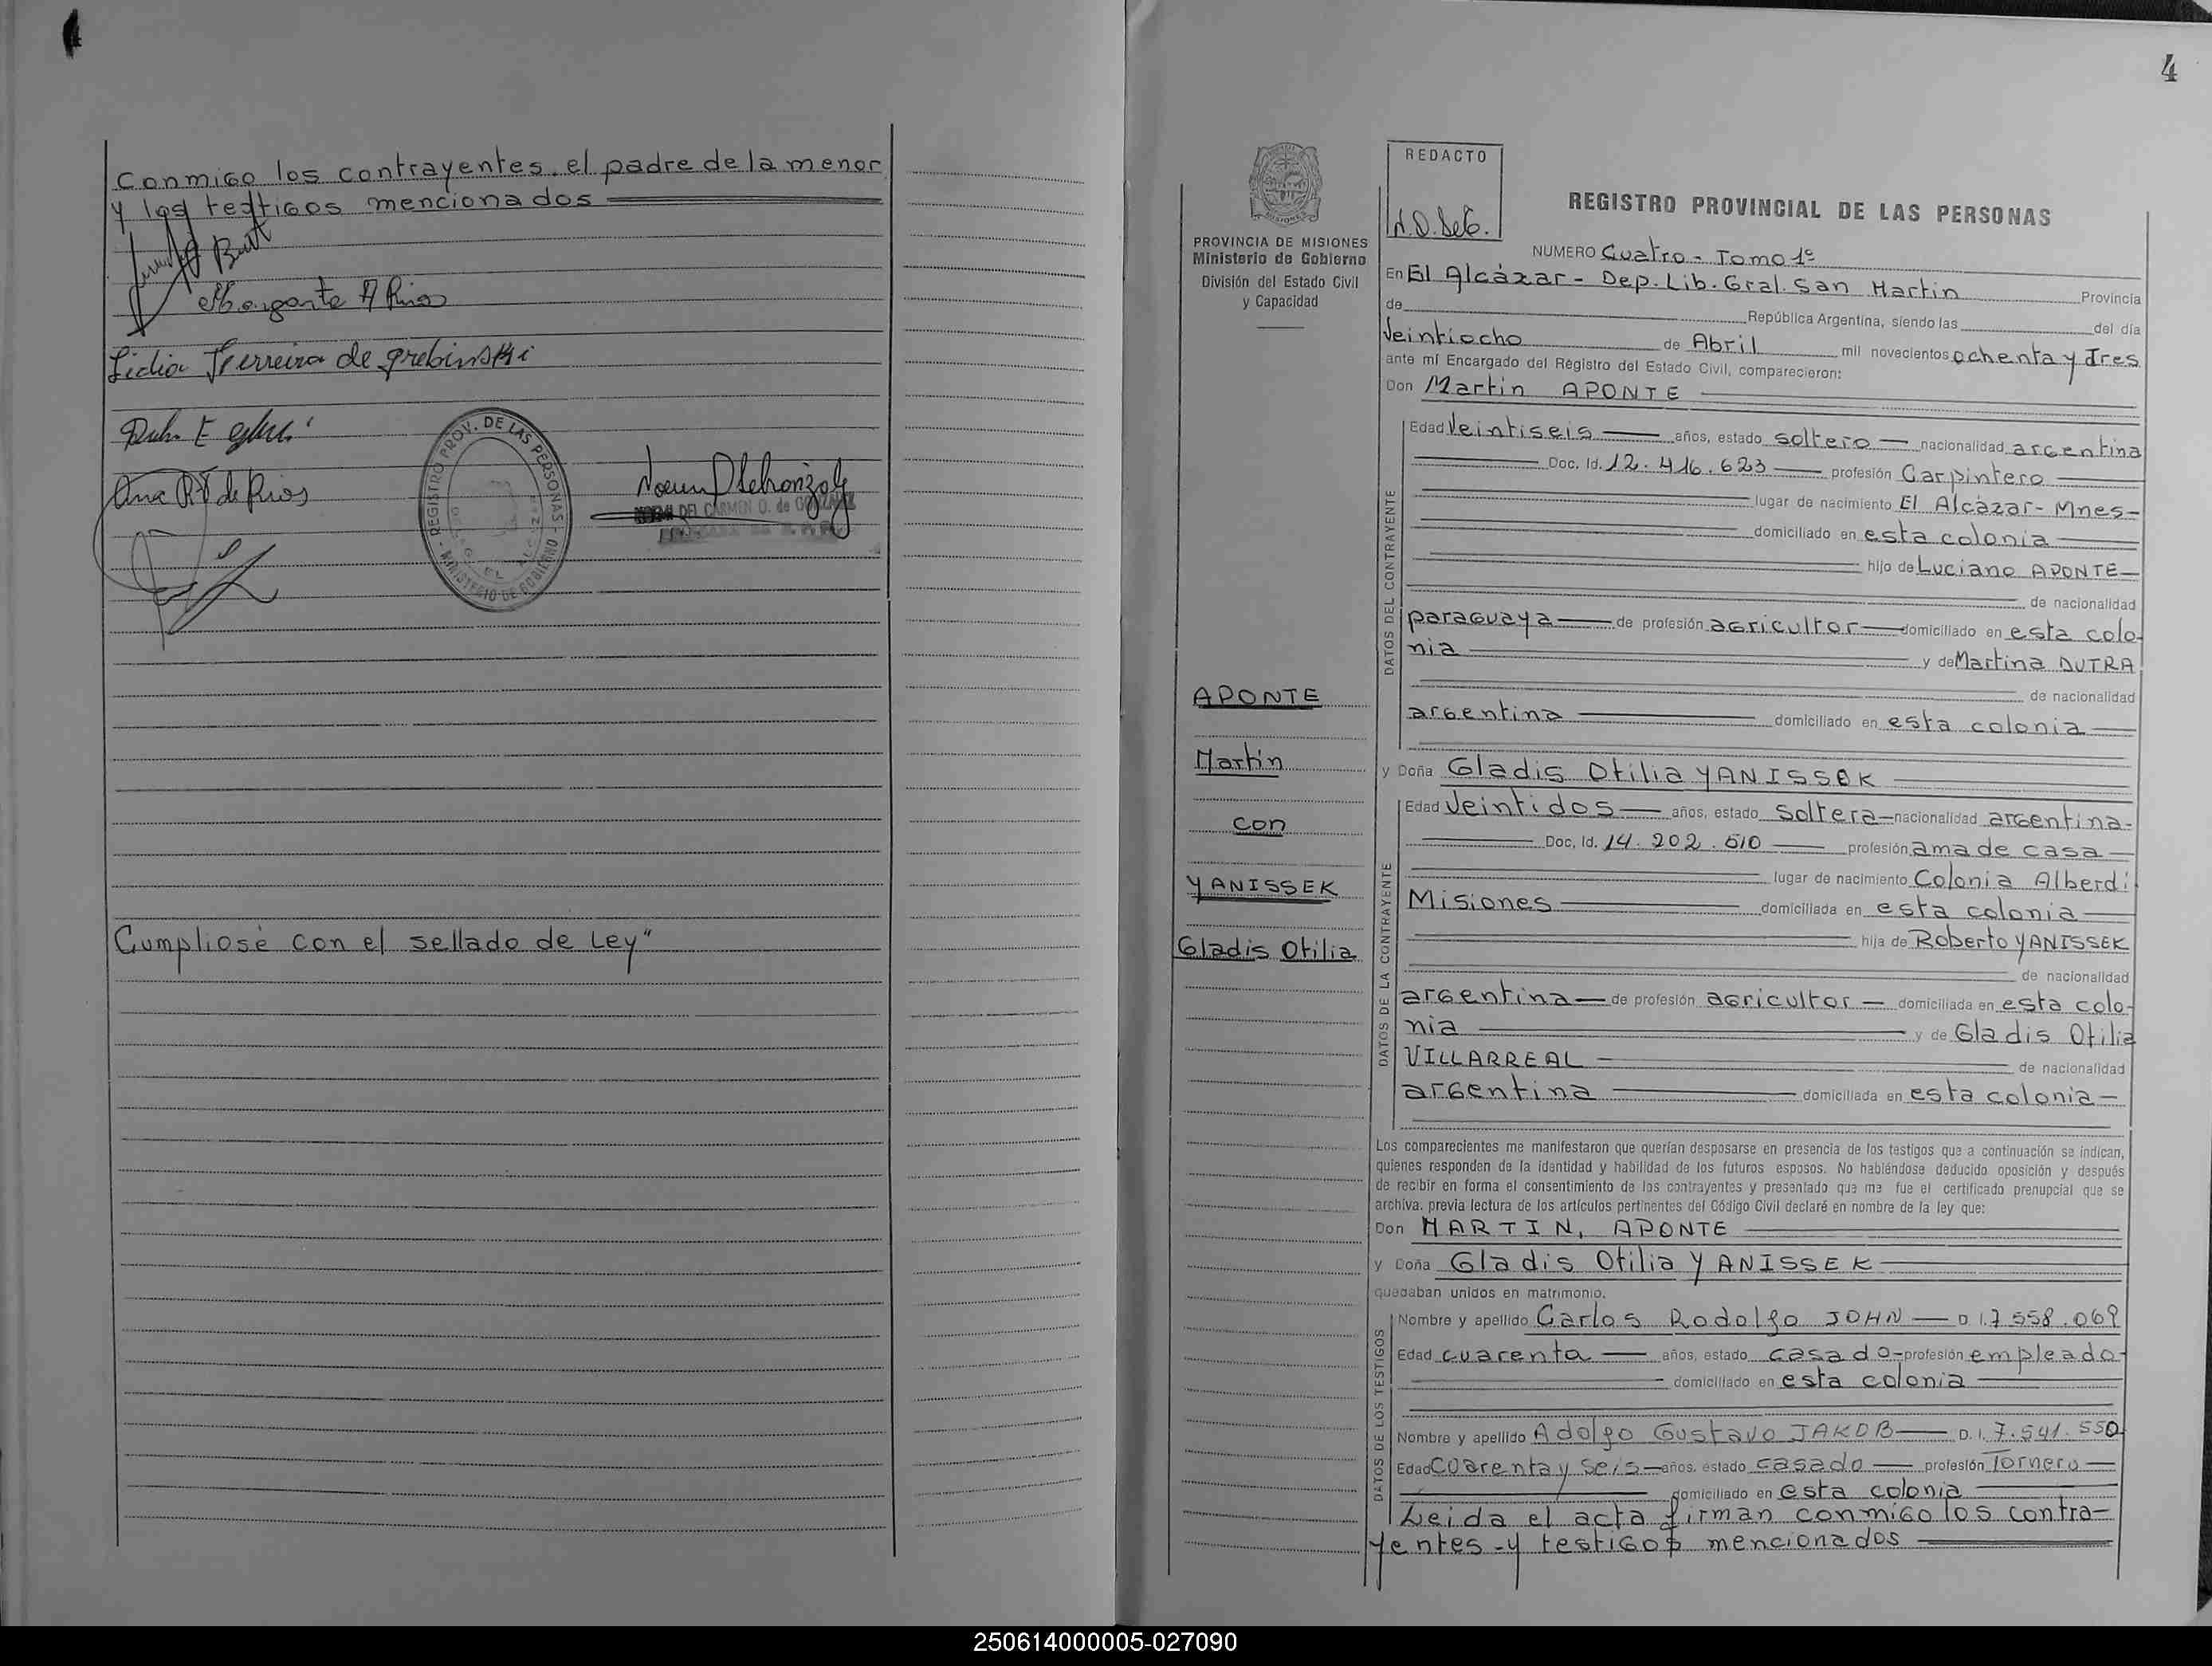 Conmigo los contrayentes, el padre de la menor
y los testigos mencionados
Margarita A Rios
Lidia Ferreira de Grebinski
Ana R T de Rios
REGISTRO PROV. DE LAS PERSONAS - MINISTERIO DE GOBIERNO -
NOEMI DEL CARMEN O. de GONZALEZ
Cumpliose con el sellado de Ley"
4
PROVINCIA DE MISIONES
Ministerio de Gobierno
División del Estado Civil
y Capacidad
APONTE
Martin
con
YANISSEK
Gladis Otilia
REDACTO
N.O.DeG.
REGISTRO PROVINCIAL DE LAS PERSONAS
NUMERO Cuatro - Tomo 1º
En El Alcázar - Dep. Lib. Gral. San Martin Provincia
de República Argentina, siendo las del día
Veintiocho de Abril mil novecientos ochenta y Tres
ante mí Encargado del Registro del Estado Civil, comparecieron:
Don Martin APONTE
DATOS DEL CONTRAYENTE
Edad Veintiseis años, estado soltero nacionalidad argentina
Doc. Id. 12.416.623 profesión Carpintero
lugar de nacimiento El Alcázar - Mnes-
domiciliado en esta colonia
hijo de Luciano APONTE
de nacionalidad
paraguaya de profesión agricultor domiciliado en esta colo-
nia y de Martina DUTRA
de nacionalidad
argentina domiciliado en esta colonia
y Doña Gladis Otilia YANISSEK
DATOS DE LA CONTRAYENTE
Edad Veintidos años, estado soltera nacionalidad argentina-
Doc. Id. 14.202.610 profesión ama de casa
lugar de nacimiento Colonia Alberdi
Misiones domiciliada en esta colonia
hija de Roberto YANISSEK
de nacionalidad
argentina de profesión agricultor domiciliada en esta colo-
nia y de Gladis Otilia
VILLARREAL de nacionalidad
argentina domiciliada en esta colonia
Los comparecientes me manifestaron que querían desposarse en presencia de los testigos que a continuación se indican,
quienes responden de la identidad y habilidad de los futuros esposos. No habiéndose deducido oposición y después
de recibir en forma el consentimiento de los contrayentes y presentado que me fue el certificado prenupcial que se
archiva, previa lectura de los artículos pertinentes del Código Civil declaré en nombre de la ley que:
Don MARTIN, APONTE
y Doña Gladis Otilia YANISSEK
quedaban unidos en matrimonio.
DATOS DE LOS TESTIGOS
Nombre y apellido Carlos Rodolfo JOHN D.I. 7.558.069
Edad cuarenta años, estado casado profesión empleado
domiciliado en esta colonia
Nombre y apellido Adolfo Gustavo JAKOB D.I. 7.541.550
Edad cuarenta y seis años, estado casado profesión Tornero
domiciliado en esta colonia
Leida el acta firman conmigo los contra-
yentes y testigos mencionados
250614000005-027090